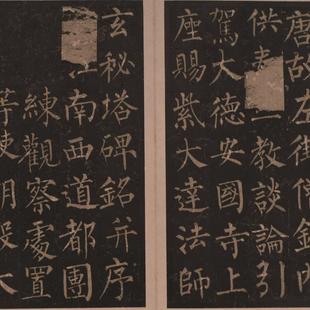 唐故左街僧錄內
供教談論引
駕大德安國寺上
座賜紫大達法師
玄秘塔碑銘并序
江南西道都團
練觀察處置
等使朝散大